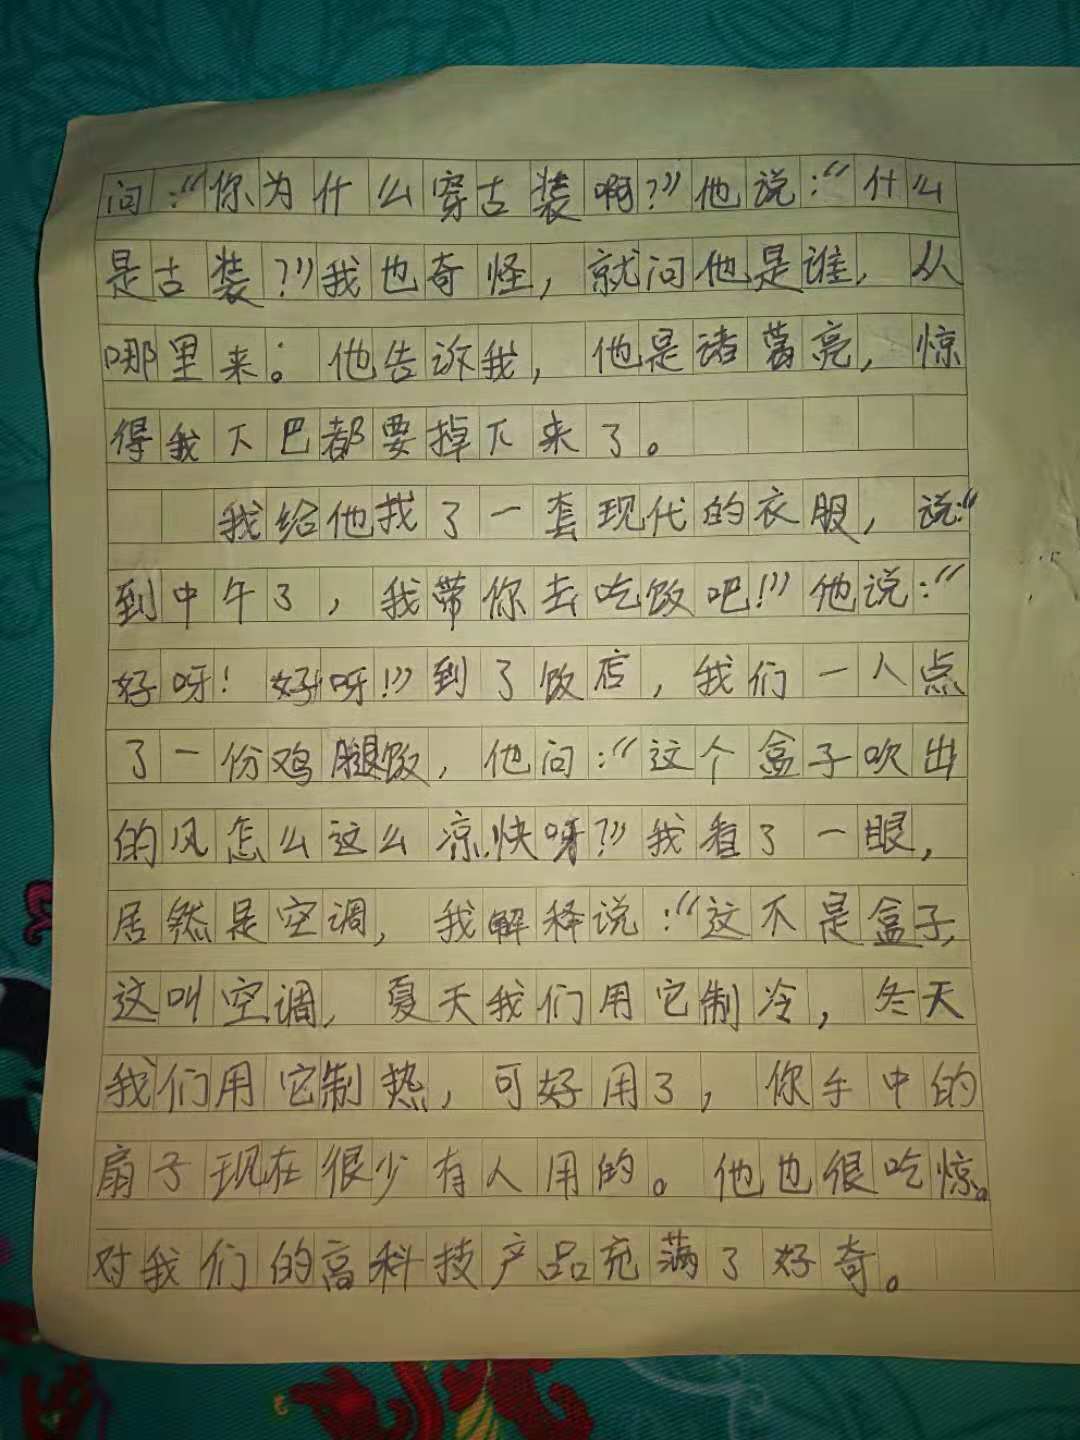 问：“你为什么穿古装啊？”他说：“什么
是古装？”我也奇怪，就问他是谁，从
哪里来。他告诉我，他是诸葛亮，惊
得我下巴都要掉下来了。
我给他找了一套现代的衣服，说：“
到中午了，我带你去吃饭吧！”他说：“
好呀！好呀！”到了饭店，我们一人点
了一份鸡腿饭，他问：“这个盒子吹出
的风怎么这么凉快呀？”我看了一眼，
居然是空调，我解释说：“这不是盒子，
这叫空调，夏天我们用它制冷，冬天
我们用它制热，可好用了，你手中的
扇子现在很少有人用的。他也很吃惊。
对我们的高科技产品充满了好奇。